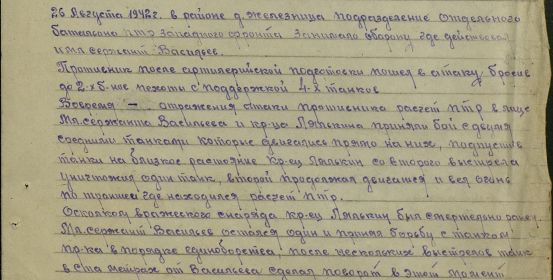 26 Августа 1942 г. в районе д. Железница подразделение отдельного
батальона ПТР Западного фронта занимало оборону, где действовал
и мл. сержант Васильев.
Противник после артилерийской подготовки пошел в атаку, бросив
до 2-х б-нов пехоты с поддержкой 4-х танков
Вовремя – отражения атаки противника расчет ПТР в лице
Мл. сержанта Васильева и кр-ца Лялькина приняли бой с двумя
средними танками которые двигались прямо на них, подпустив
танки на близкое растояние Кр-ец Лялькин со второго выстрела
уничтожил один танк, второй продолжал двигатся и вел огонь
по траншеи где находился расчет ПТР.
Осколком вражеского снаряда кр-ец Лялькин был смертельно ранен
Мл. сержант Васильев остался один и принял борьбу с танком
пр-ка в порядке единоборства, после нескольких выстрелов танк
в ста метрах от Васильева сделал поворот в этот момент